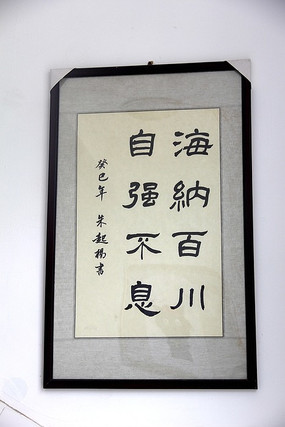 海納百川
自强不息
癸巳年 朱起楊書